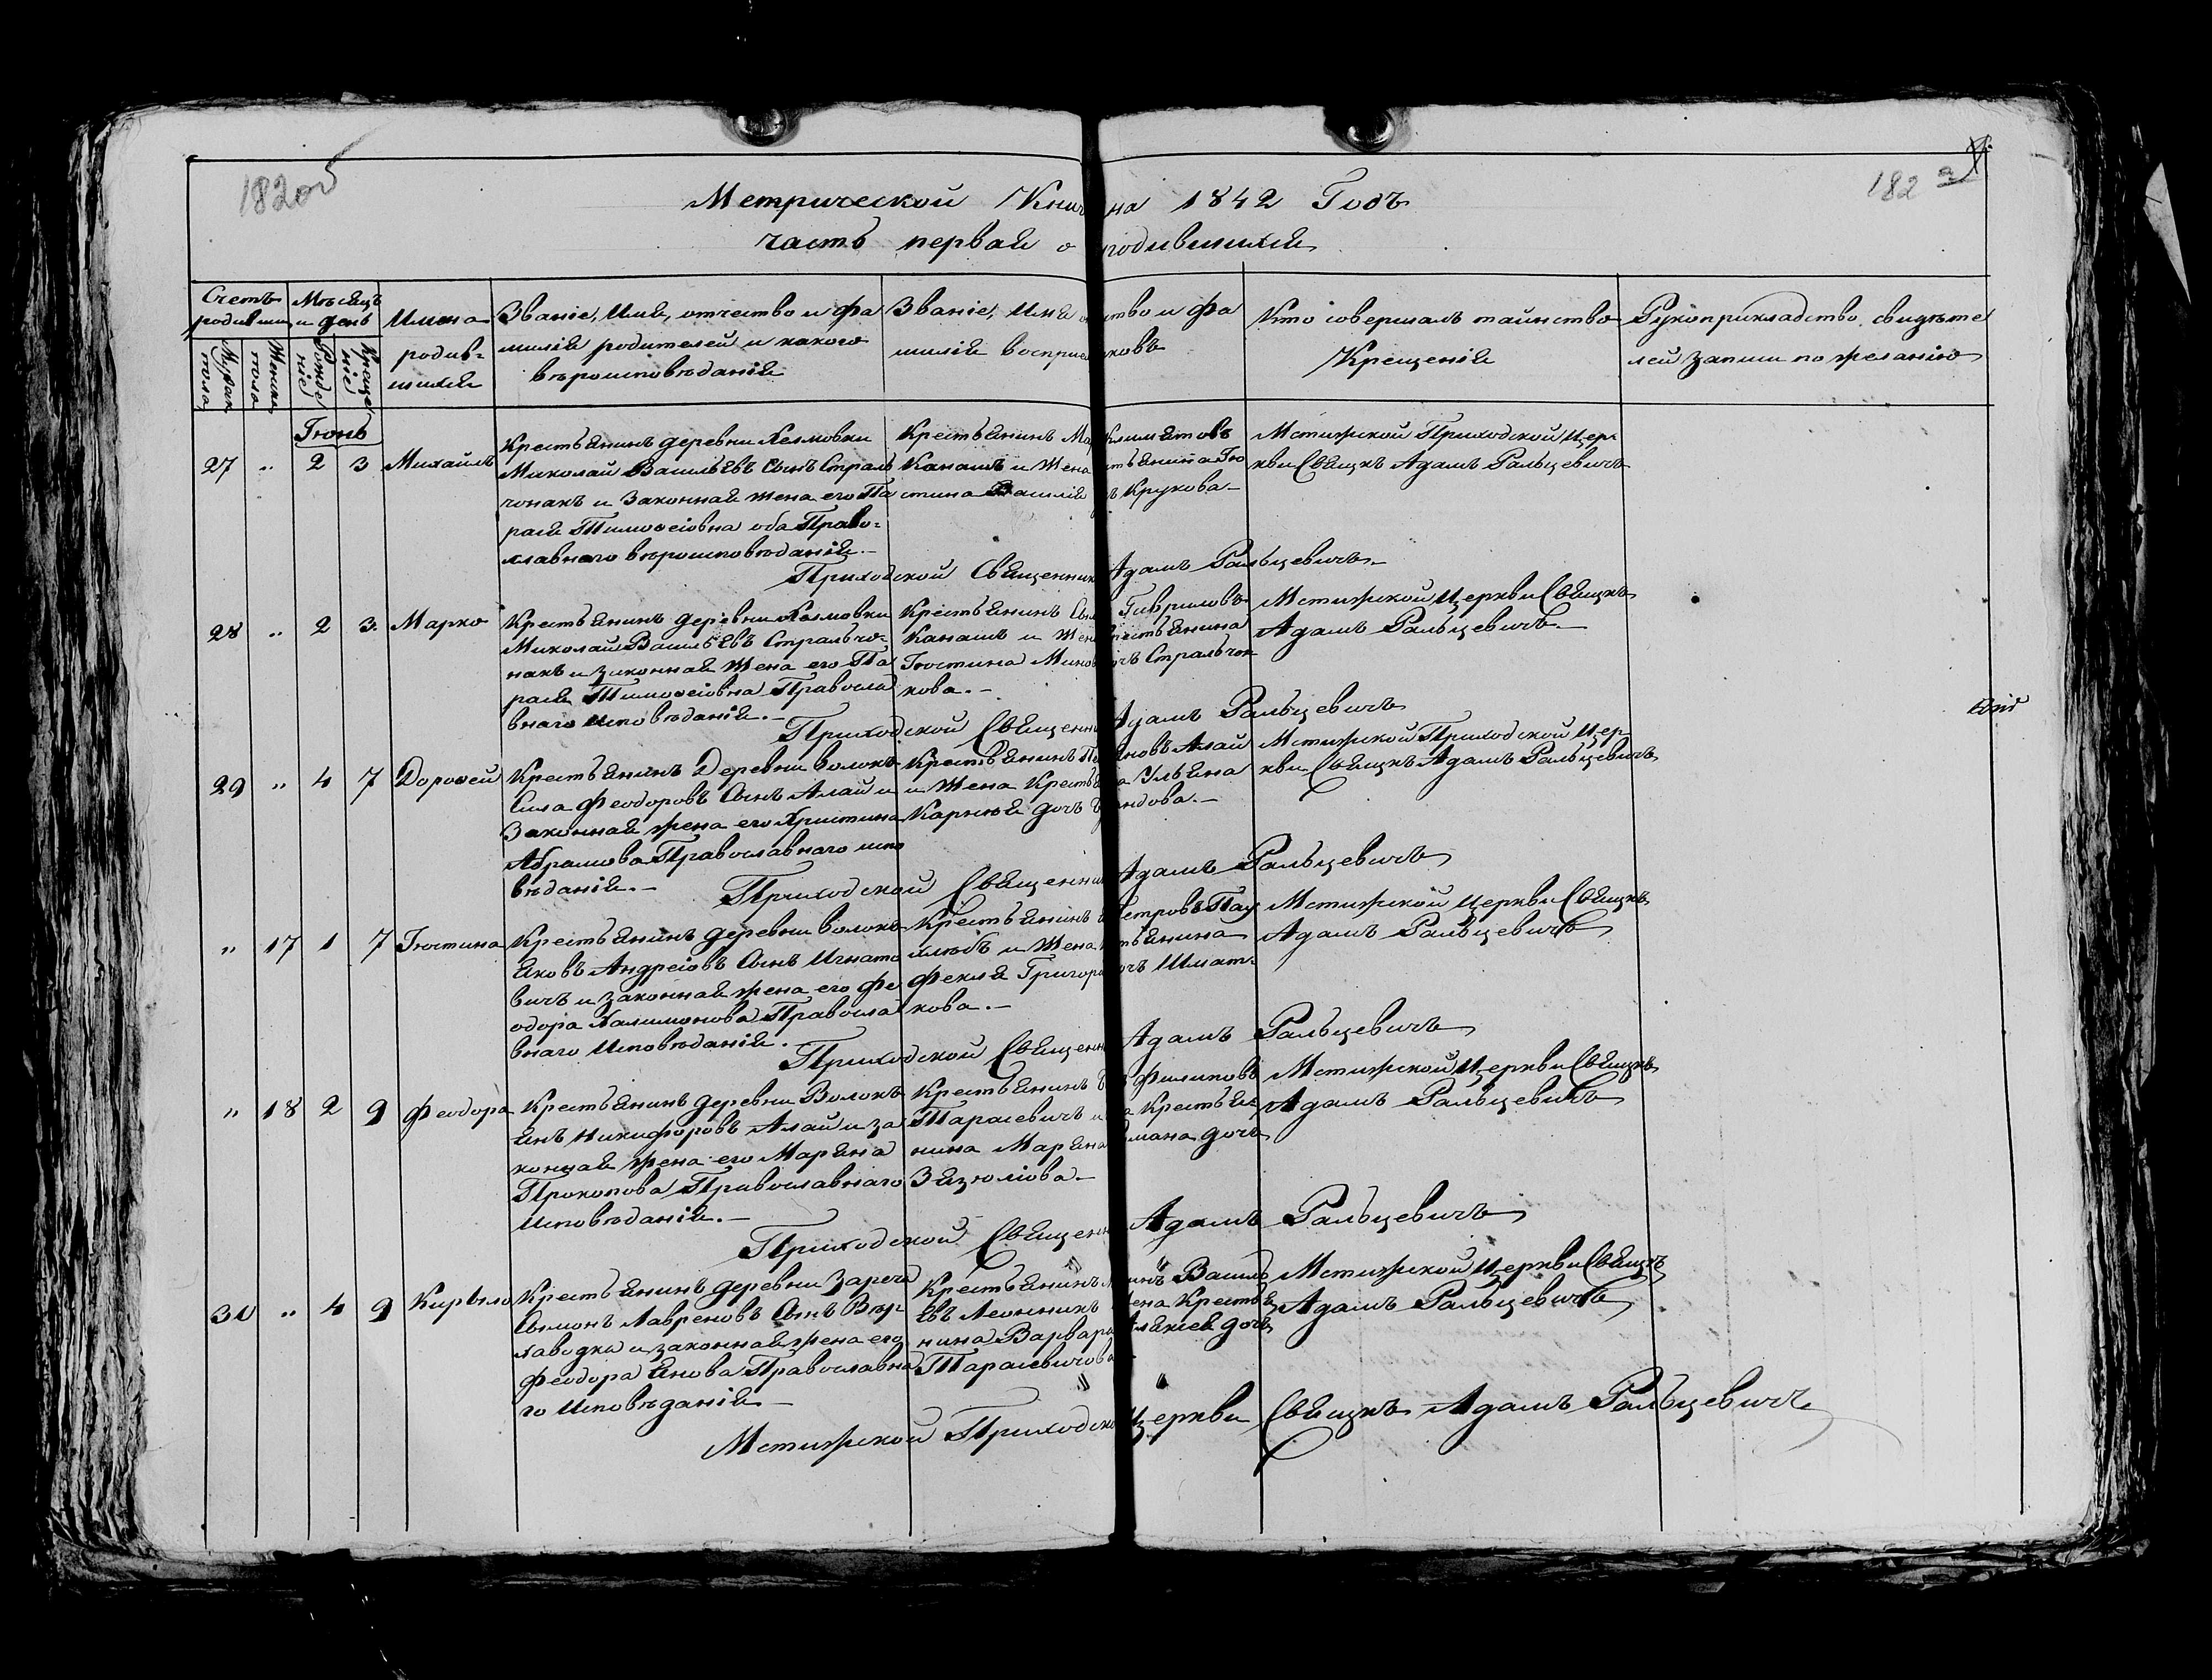 182об
182 а
Метрической Книги на 1842 Годъ
часть первая о родившихся
Счетъ родивши
Мѣсяцъ и день
Имена родив=
шихся
Званіе, Имя, отчество и фа
милія родителей и какого
вѣроисповѣданія
Званіе, Имя о ство и фа
милія восприем никовъ
Кто совершалъ таинство
Крещенія
Рукоприкладство свидѣте
лей записи по желанію
Мужск
пола
Женск
пола
Рожде
ніе
Креще
ніе
Іюнь
27 " 2 3 Михаилъ
Крестьянинъ деревни Холмовки
Миколай Васильевъ сынъ Страль
чонакъ и Законная жена его Па
рася Тимоѳеіовна оба Право=
славнаго вѣроисповѣданія.-
Крестьянинъ Ма Климятовъ
Канашъ и Жена стьянина Ію
стина Василія ъ Крукова-
Мстижской Приходской Цер-
кви Свящкъ Адамъ Ральцевичъ
Приходской Священник Адамъ Ральцевичъ
28 " 2 3. Марко
Крестьянинъ деревни Холмовки
Миколай Васильевъ Стральчо-
накъ и законная Жена его Па
рася Тимоѳеіовна Правосла
внаго исповѣданія.-
Крестьянинъ Сы Гавриловъ
Канашъ и Жен рестьянина
Іюстина Минов очъ Стральчон
кова.-
Мстижской Церкви Свящкъ
Адамъ Ральцевичъ
Приходской Священн Адамъ Ральцевичъ
29 " 4 7 Дороѳей
Крестьянинъ Деревни Волокъ
Сила Феодоровъ Сынъ Алай и
Законная жена его Христина
Абрамова Православнаго испо
вѣданія.-
Крестьянинъ П ановъ Алай
и Жена Крестья а Ульяна
Карнѣя дочъ ндова.-
Мстижской Приходской Цер
кви Свящкъ Адамъ Ральцевичъ
Приходской Священни Адамъ Ральцевичъ
" 17 1 7 Іюстина
Крестьянинъ деревни Волокъ
Яковъ Андреіовъ Сынъ Игнато
вичъ и законная жена его Фе
одора Халимонова Правосла
внаго Исповѣданія.
Крестьянинъ Петровъ Пау
хлюбъ и Жена тьянина
Фекля Григор очъ Шмат-
кова.-
Мстижской Церкви Свящкъ
Адамъ Ральцевичъ
Приходской Священн Адамъ Ральцевичъ
" 18 2 9 Феодора
Крестьянинъ деревни Волокъ
Янъ Никифоровъ Алай и за
конная жена его Марьяна
Прокопова Православнаго
Исповѣданія.-
Крестьянинъ Филиповъ
Тарасевичъ и а Крестья
нина Марьяна мана дочъ
Зязюліова.-
Мстижской Церкви Свящкъ
Адамъ Ральцевичъ
Приходской Священ Адамъ Ральцевичъ
30 " 4 9 Кирыло
Крестьянинъ деревни Заречя
Сымонъ Лавреновъ Сынъ Вер
хаводка и законная жена его
Феодора Янова Православна
го Исповѣданія
Крестьянинъ инъ Василь
евъ Леончикъ ена Крестья
нина Варвара Алякіев дочъ
Тарасевичова
Мстижской Церкви Свящкъ
Адамъ Ральцевичъ
Мстижской Приходско Церкви Свящкъ Адамъ Ральцевичъ